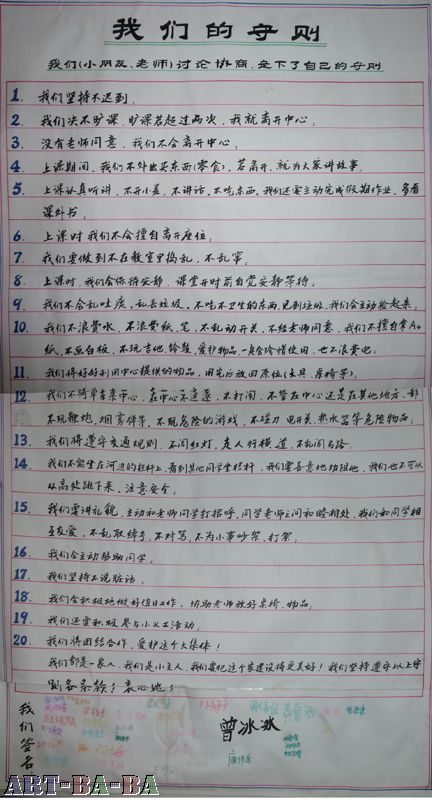 我们的守则
我们(小朋友、老师)讨论协商,定下了自己的守则
1. 我们坚持不迟到;
2. 我们决不旷课,旷课若超过两次,我就离开中心;
3. 没有老师同意,我们不会离开中心;
4. 上课期间,我们不外出买东西(零食),若离开,就为大家讲故事;
5. 上课认真听讲,不开小差,不讲话,不吃东西,我们还要主动完成假期作业,多看
课外书;
6. 上课时我们不会擅自离开座位;
7. 我们要做到不在教室里捣乱,不乱窜;
8. 上课时,我们会保持安静,课堂开时前自觉安静等待;
9. 我们不会乱吐痰,乱丢垃圾,不吃不卫生的东西,见到垃圾,我们会主动捡起来;
10. 我们不浪费水,不浪费纸、笔,不乱动开关,不经老师同意,我们不擅自拿A4
纸,不画白板,不玩吉他、铃鼓,爱护物品,一定会珍惜使用,也不浪费电;
11. 我们将好好利用中心提供的物品,用完后放回原位(文具、桌椅等);
12. 我们不骑单车来中心,在中心不追逐,不打闹,不管在中心还是在其他地方,都
不玩鞭炮,烟雾弹等,不玩危险的游戏,不碰刀、电开关、热水器等危险物品;
13. 我们将遵守交通规则,不闯红灯,走人行横道,不乱闯马路;
14. 我们不能坐在河边的栏杆上,看到其他同学坐栏杆,我们要善意地劝阻他,我们也不可以
从高处跳下来,注意安全;
15. 我们要讲礼貌,主动和老师同学打招呼,同学老师之间和睦相处,我们如同学相
互友爱,不乱取绰号,不对骂,不为小事吵架、打架;
16. 我们会主动帮助同学;
17. 我们坚持不说脏话;
18. 我们会积极地做好值日工作,协助老师放好桌椅、物品;
19. 我们还要积极参与小义工活动;
20. 我们将团结合作,爱护这个大集体!
我们都是一家人,我们是小主人,我们要把这个家建设得更美好!我们坚持遵守以上守
则各条款!衷心地!
我们签名
曾冰冰
ART-BA-BA